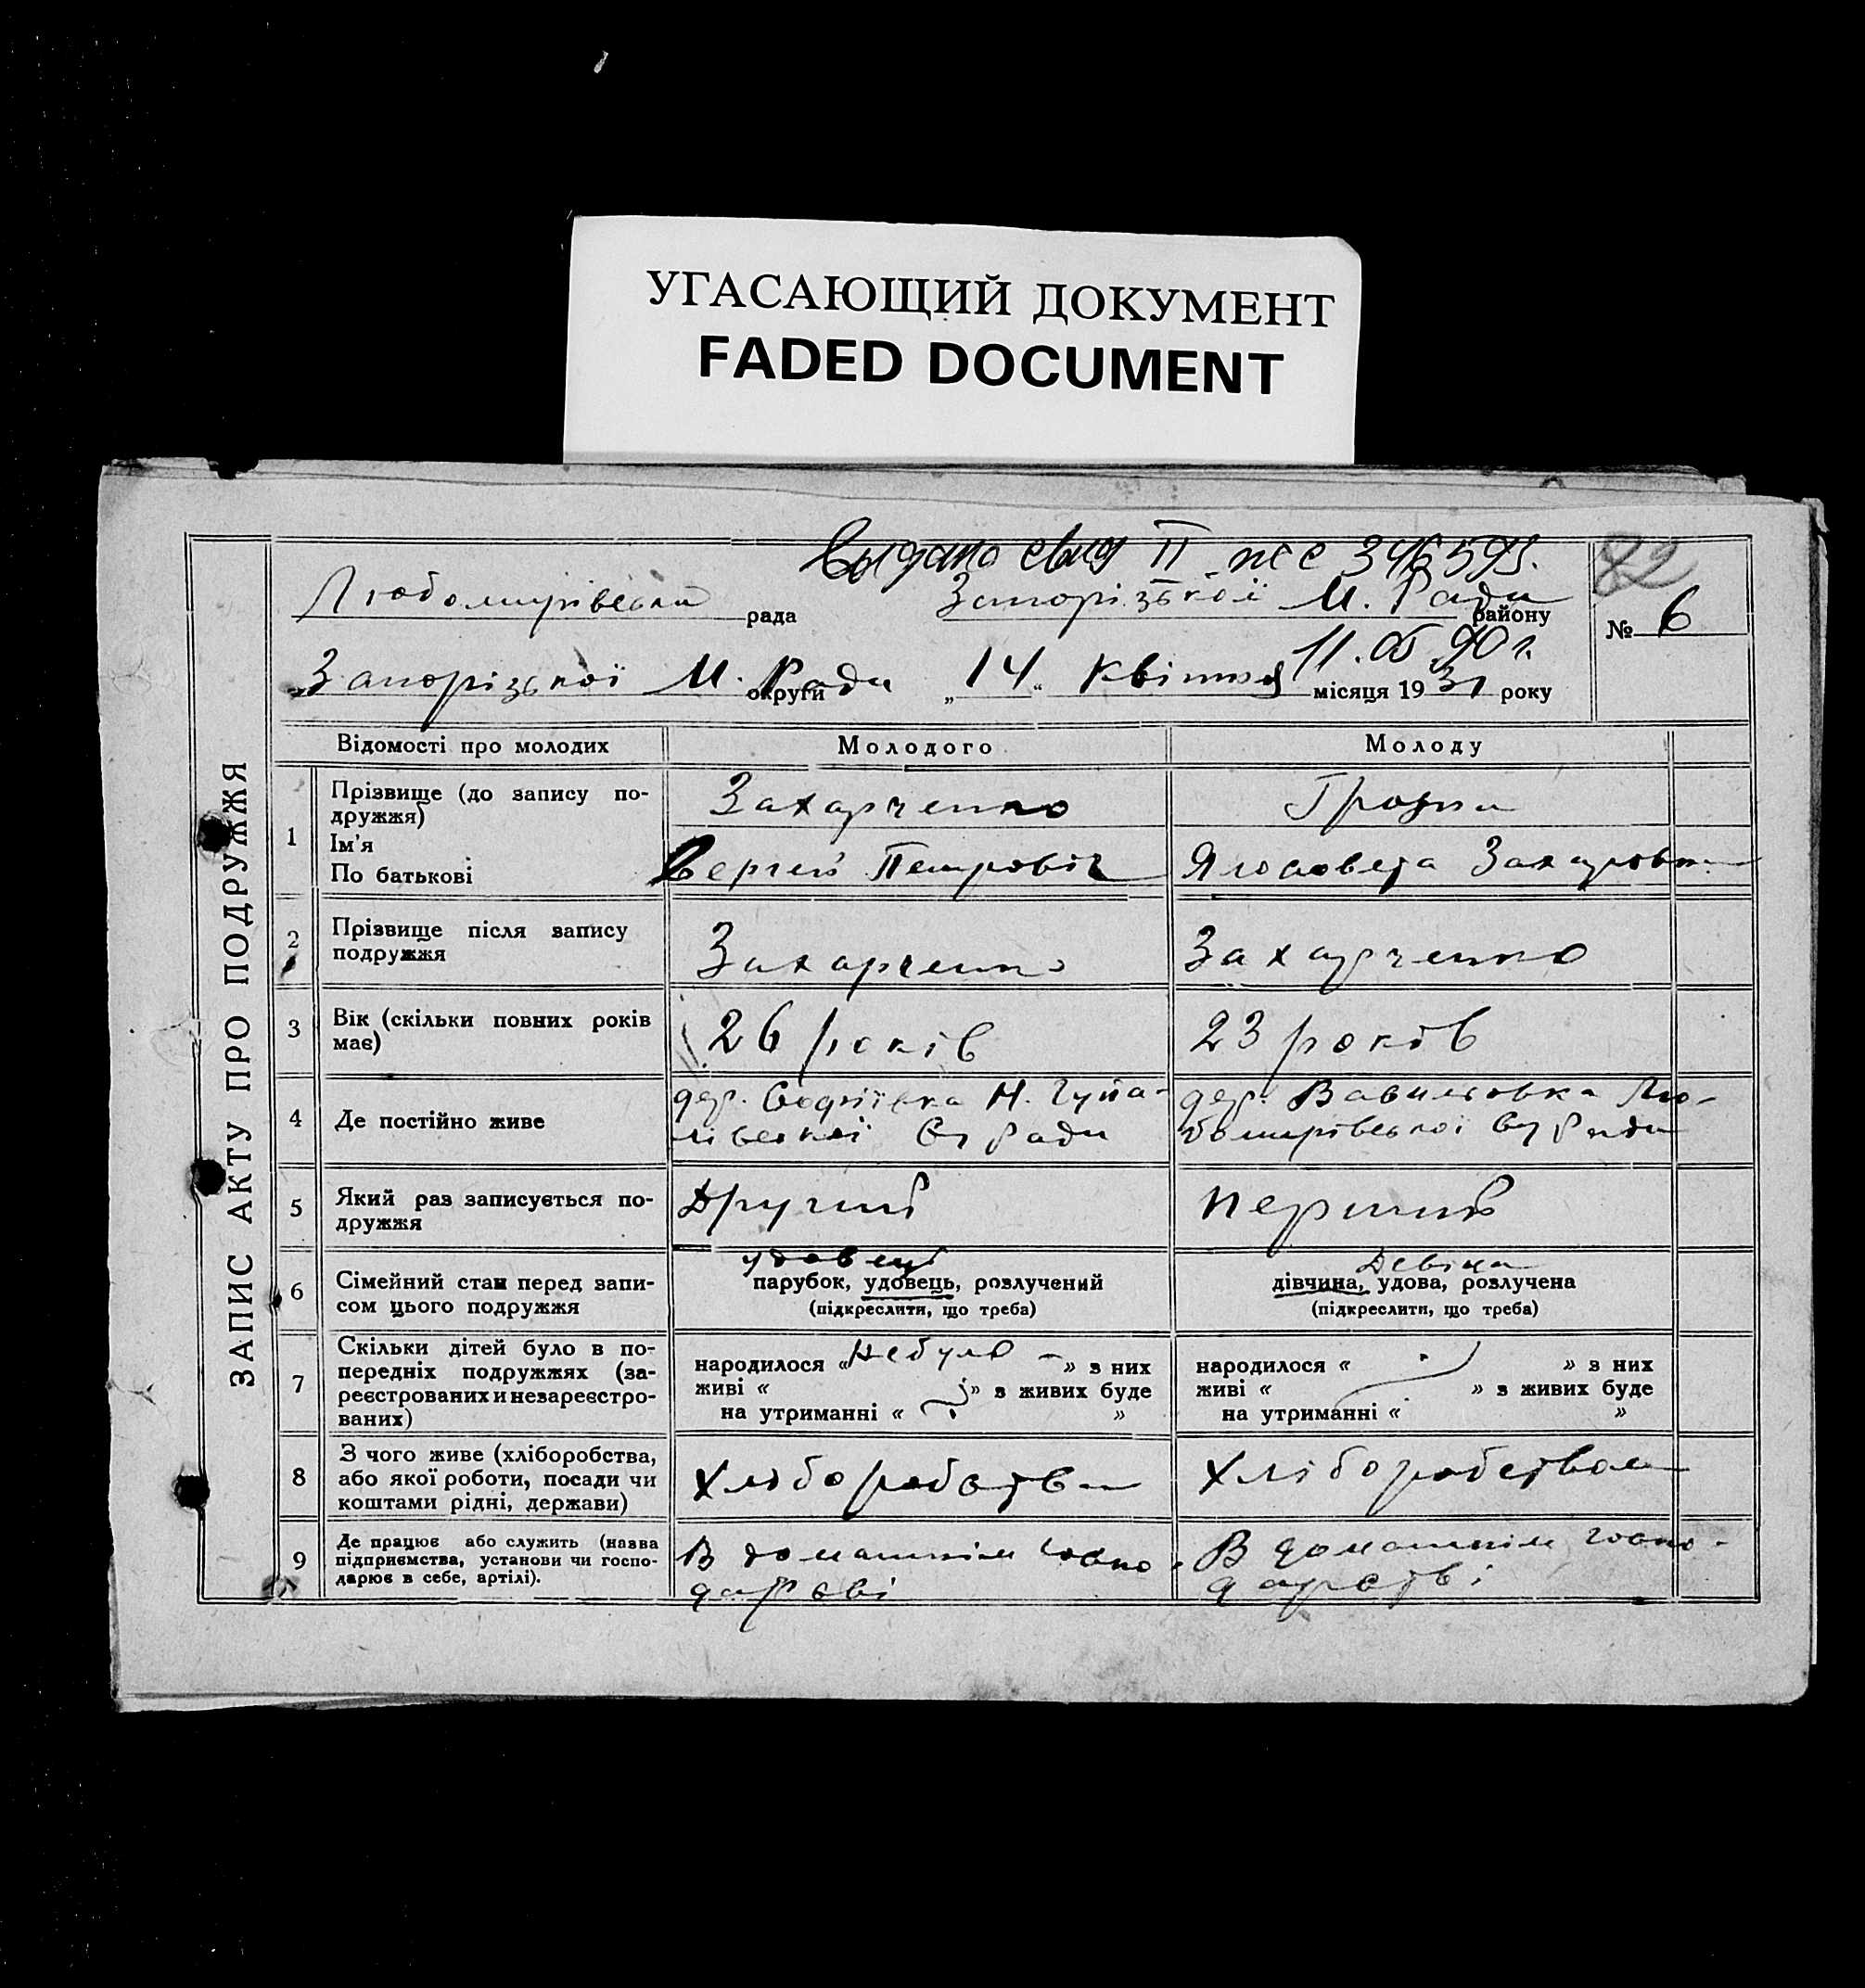 УГАСАЮЩИЙ ДОКУМЕНТ
FADED DOCUMENT
ЗАПИС АКТУ ПРО ПОДРУЖЖЯ
Выдано II 346595.
82
Любомирівська рада Запорізької М. Ради району
№ 6
11.05.90 г.
Запорізької М. Ради округи „14“ Квітня місяця 1931 року
Відомості про молодих Молодого Молоду
1 Прізвище (до запису по-
дружжя) Захарченко
Ім'я
По батькові Сергей Петровіч Ялосовета Захаровна
2 Прізвище після запису
подружжя Захарченко Захарченко
3 Вік (скільки повних років
має) 26 років 23 років
4 Де постійно живе дер. Н.
Ради дер. Вавиловка Лю-
бомирівської Ради
5 Який раз записується по-
дружжя Другий Перший
6 Сімейний стан перед запи-
сом цього подружжя удовец
парубок, удовець, розлучений
(підкреслити, що треба) Девіца
дівчина, удова, розлучена
(підкреслити, що треба)
7 Скільки дітей було в по-
передніх подружжях (за-
реєстрованих и незареєстро-
ваних) народилося « Небуло — » з них
живі « » з живих буде
на утриманні « »
народилося « » з них
живі « » з живих буде
на утриманні « »
8 З чого живе (хліборобства,
або якої роботи, посади чи
коштами рідні, держави) Хліборобства Хліборобством
9 Де працює або служить (назва
підприємства, установи чи госпо-
дарює в себе, артілі). В домашнім госпо-
дарсві В домашнім госпо-
дарстві